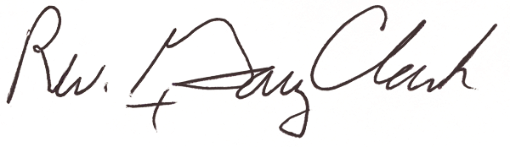 Rev. Gary Clark